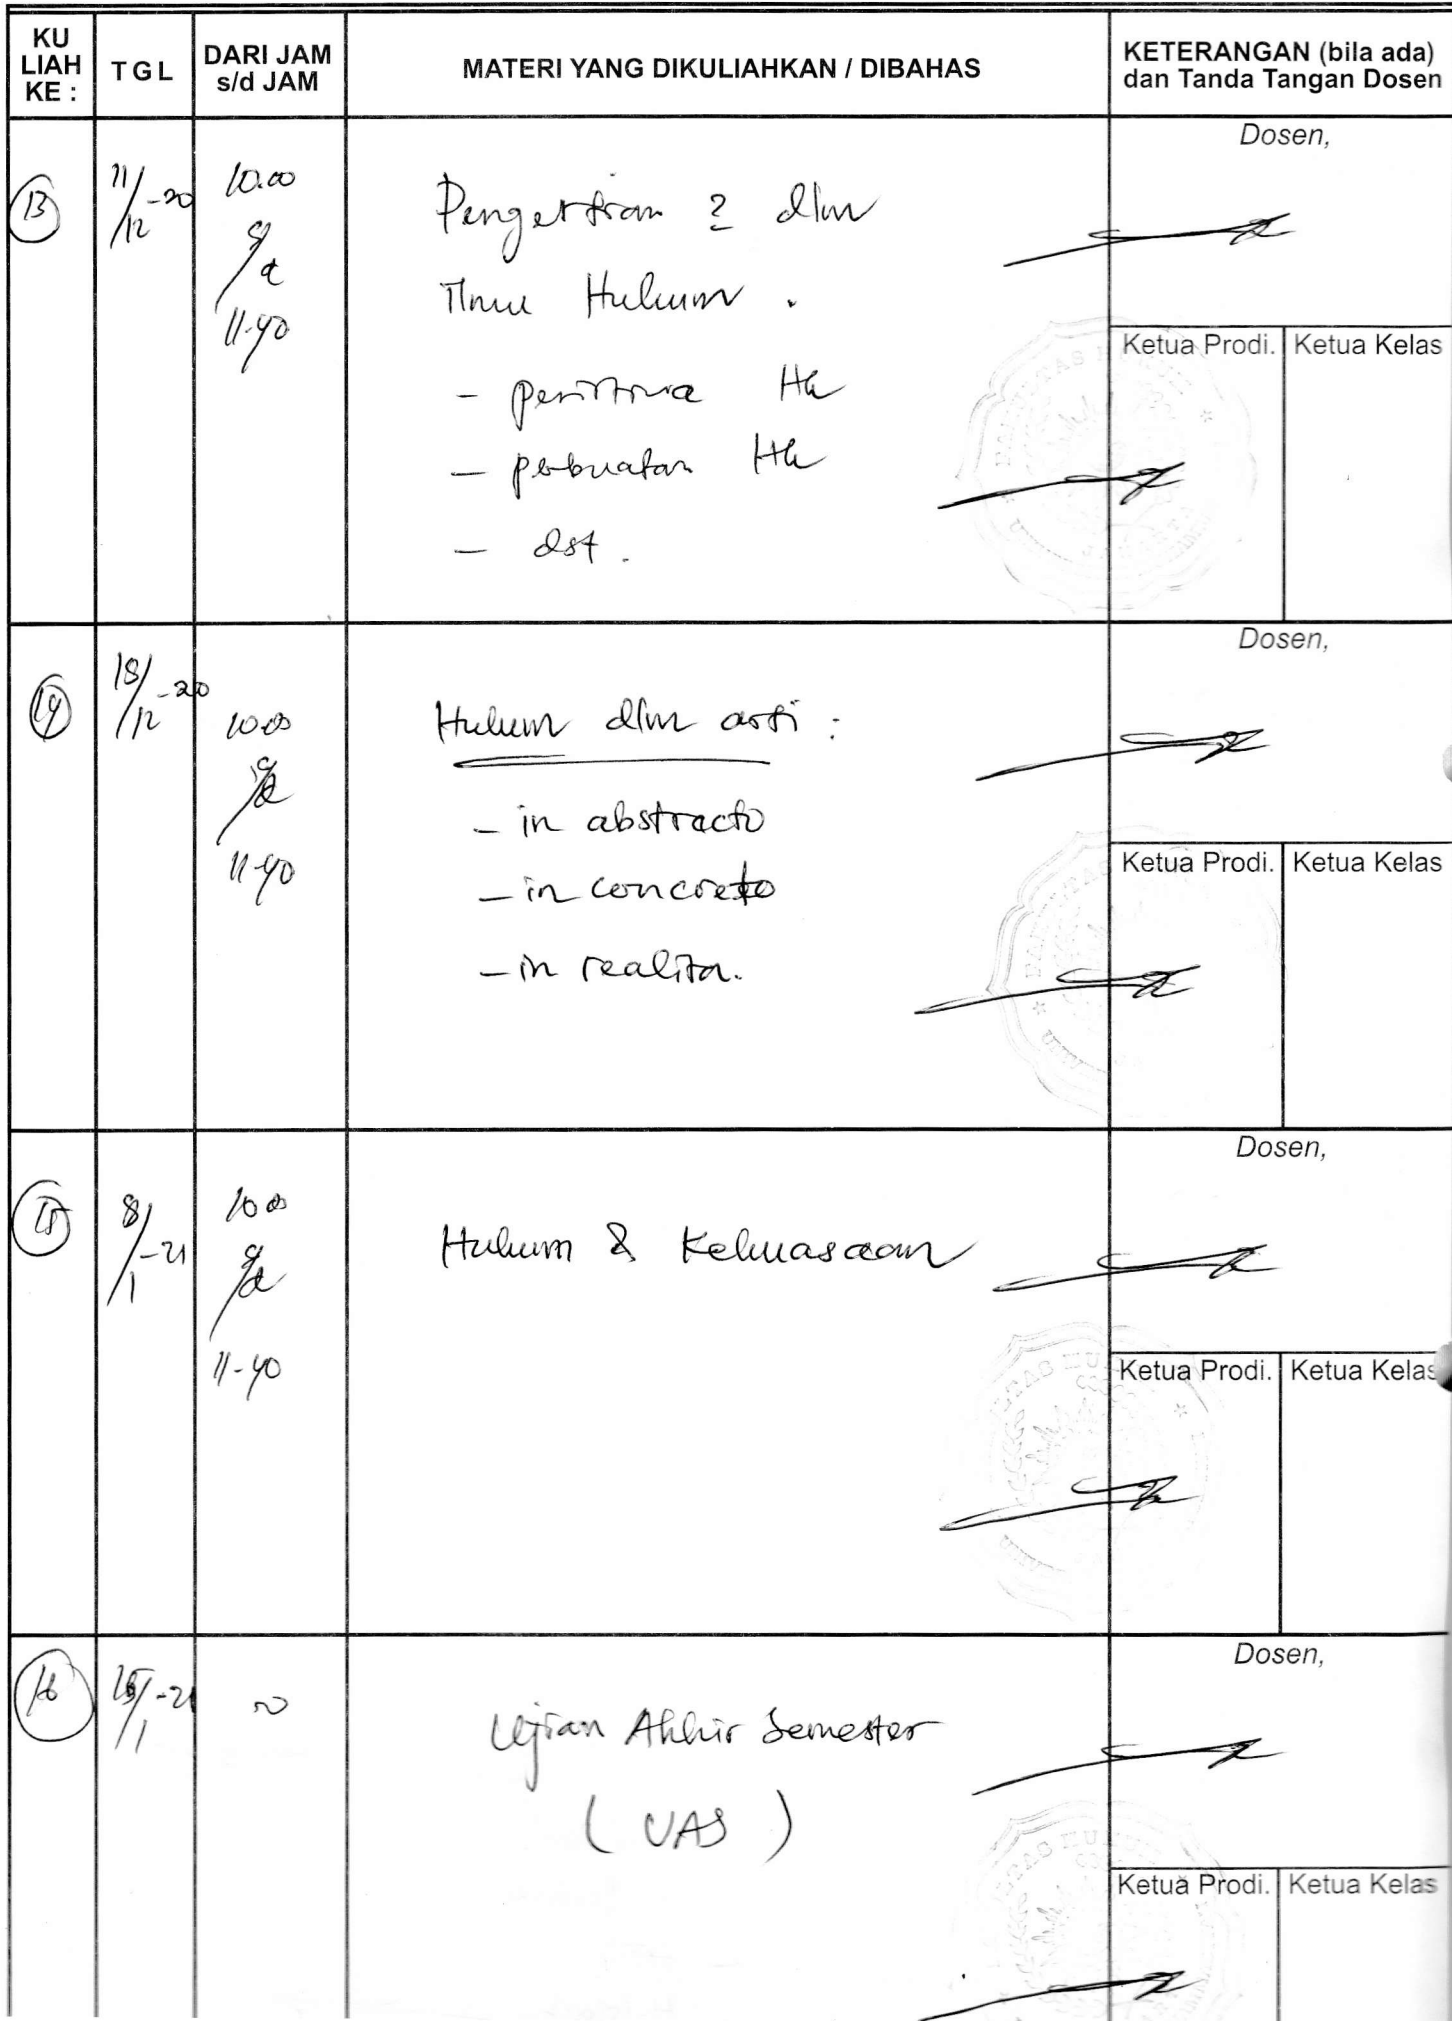 KU LIAH KE :
TGL
DARI JAM s/d JAM
MATERI YANG DIKULIAHKAN / DIBAHAS
KETERANGAN (bila ada) dan Tanda Tangan Dosen
13
11/12-20
10.00
s/d
11-40
Pengertian 2 dlm
Ilmu Hukum .
- peristiwa Hk
- perbuatan Hk
- dst .
Dosen,
Ketua Prodi.
Ketua Kelas
14
18/12-20
10.00
s/d
11-40
Hukum dlm arti :
- in abstracto
- in concreto
- in realita.
Dosen,
Ketua Prodi.
Ketua Kelas
15
8/1-21
10.00
s/d
11-40
Hukum & Kekuasaan
Dosen,
Ketua Prodi.
Ketua Kelas
16
15/1-21
Ujian Akhir Semester
( UAS )
Dosen,
Ketua Prodi.
Ketua Kelas